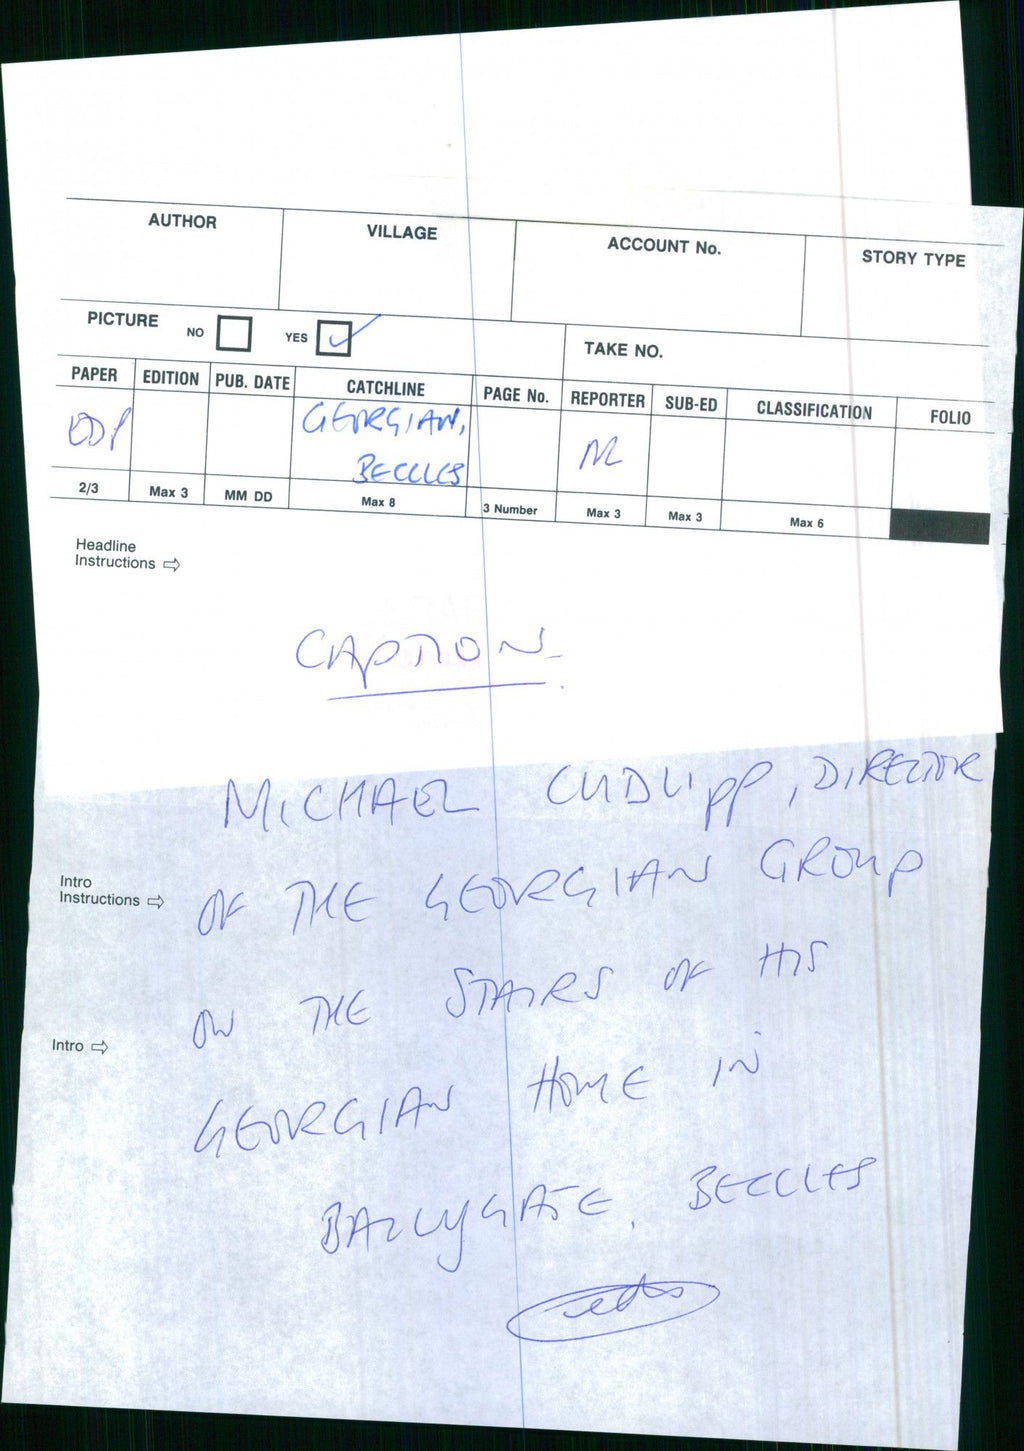 AUTHOR VILLAGE ACCOUNT No. STORY TYPE
PICTURE NO YES TAKE NO.
PAPER EDITION PUB. DATE CATCHLINE PAGE No. REPORTER SUB-ED CLASSIFICATION FOLIO
EDP GEORGIAN,
BECCLES
2/3 Max 3 MM DD Max 8 3 Number Max 3 Max 3 Max 6
Headline
Instructions ⇨
CAPTION
MICHAEL CUDLIPP, DIRECTOR
Intro
Instructions ⇨
OF THE GEORGIAN GROUP
ON THE STAIRS OF HIS
Intro ⇨
GEORGIAN HOME IN
BALLYGATE, BECCLES